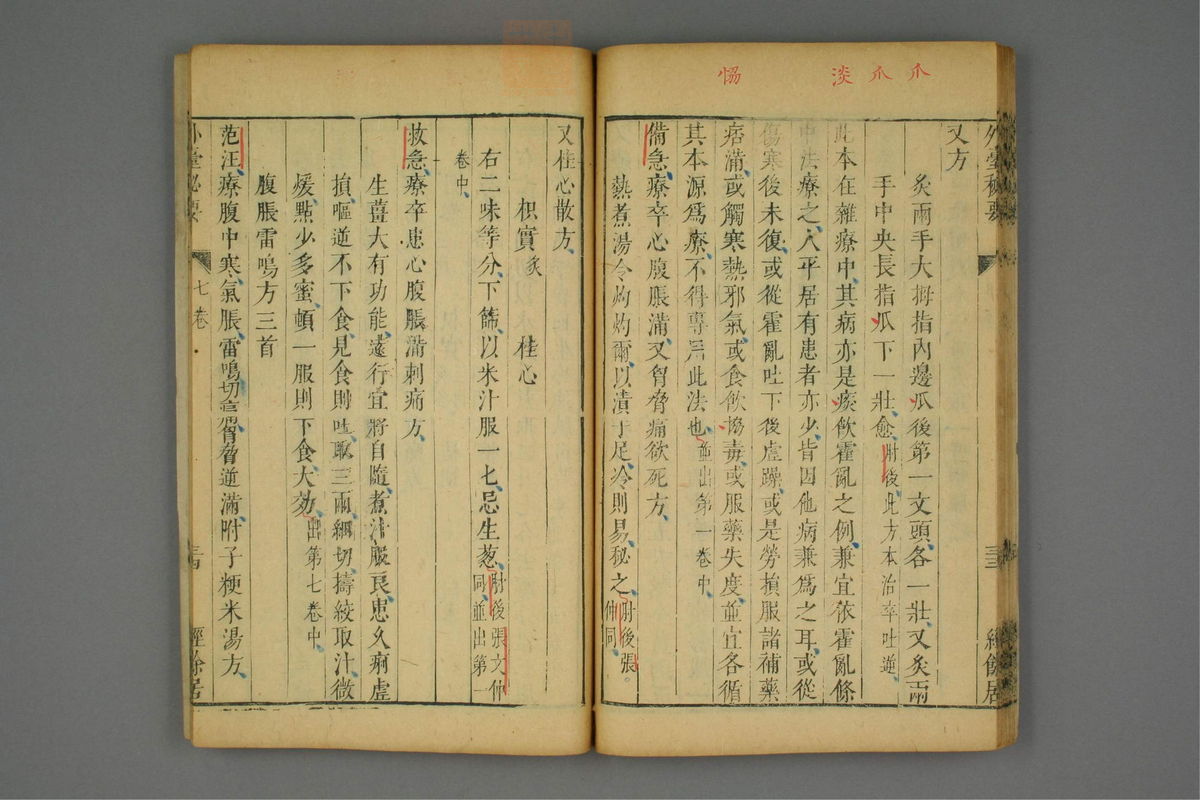 爪
爪
淡
愶
外臺秘要
三三
經餘居
又方
炙兩手大拇指內邊瓜後第一文頭各一壯又炙兩
手中央長指瓜下一壯愈肘後此方本治卒吐逆
此本在雜療中其病亦是痰飲霍亂之例兼宜依霍亂條
中法療之人平居有患者亦少皆因他病兼爲之耳或從
傷寒後未復或從霍亂吐下後虛躁或是勞損服諸補藥
痞滿或觸寒熱邪氣或食飲毒或服藥失度並宜各循
其本源爲療不得專此法也並出第一卷中
備急療卒心腹脹滿又胷脅痛欲死方
熱煮湯令灼灼爾以漬手足冷則易秘之肘後張
仲同
又桂心散方
枳實炙 桂心
右二味等分下篩以米汁服一七忌生葱肘後張文仲
同並出第一
卷中
救急療卒患心腹脹滿刺痛方
生薑大有功能遠行宜將自隨煮汁服良患久痢虛
損嘔逆不下食見食則吐取三兩細切擣絞取汁微
煖點少多蜜頓一服則下食大効出第七卷中
腹脹雷鳴方三首
范汪療腹中寒氣脹雷鳴切痛胷脅逆滿附子粳米湯方
外臺秘要
七卷
三四
經餘居